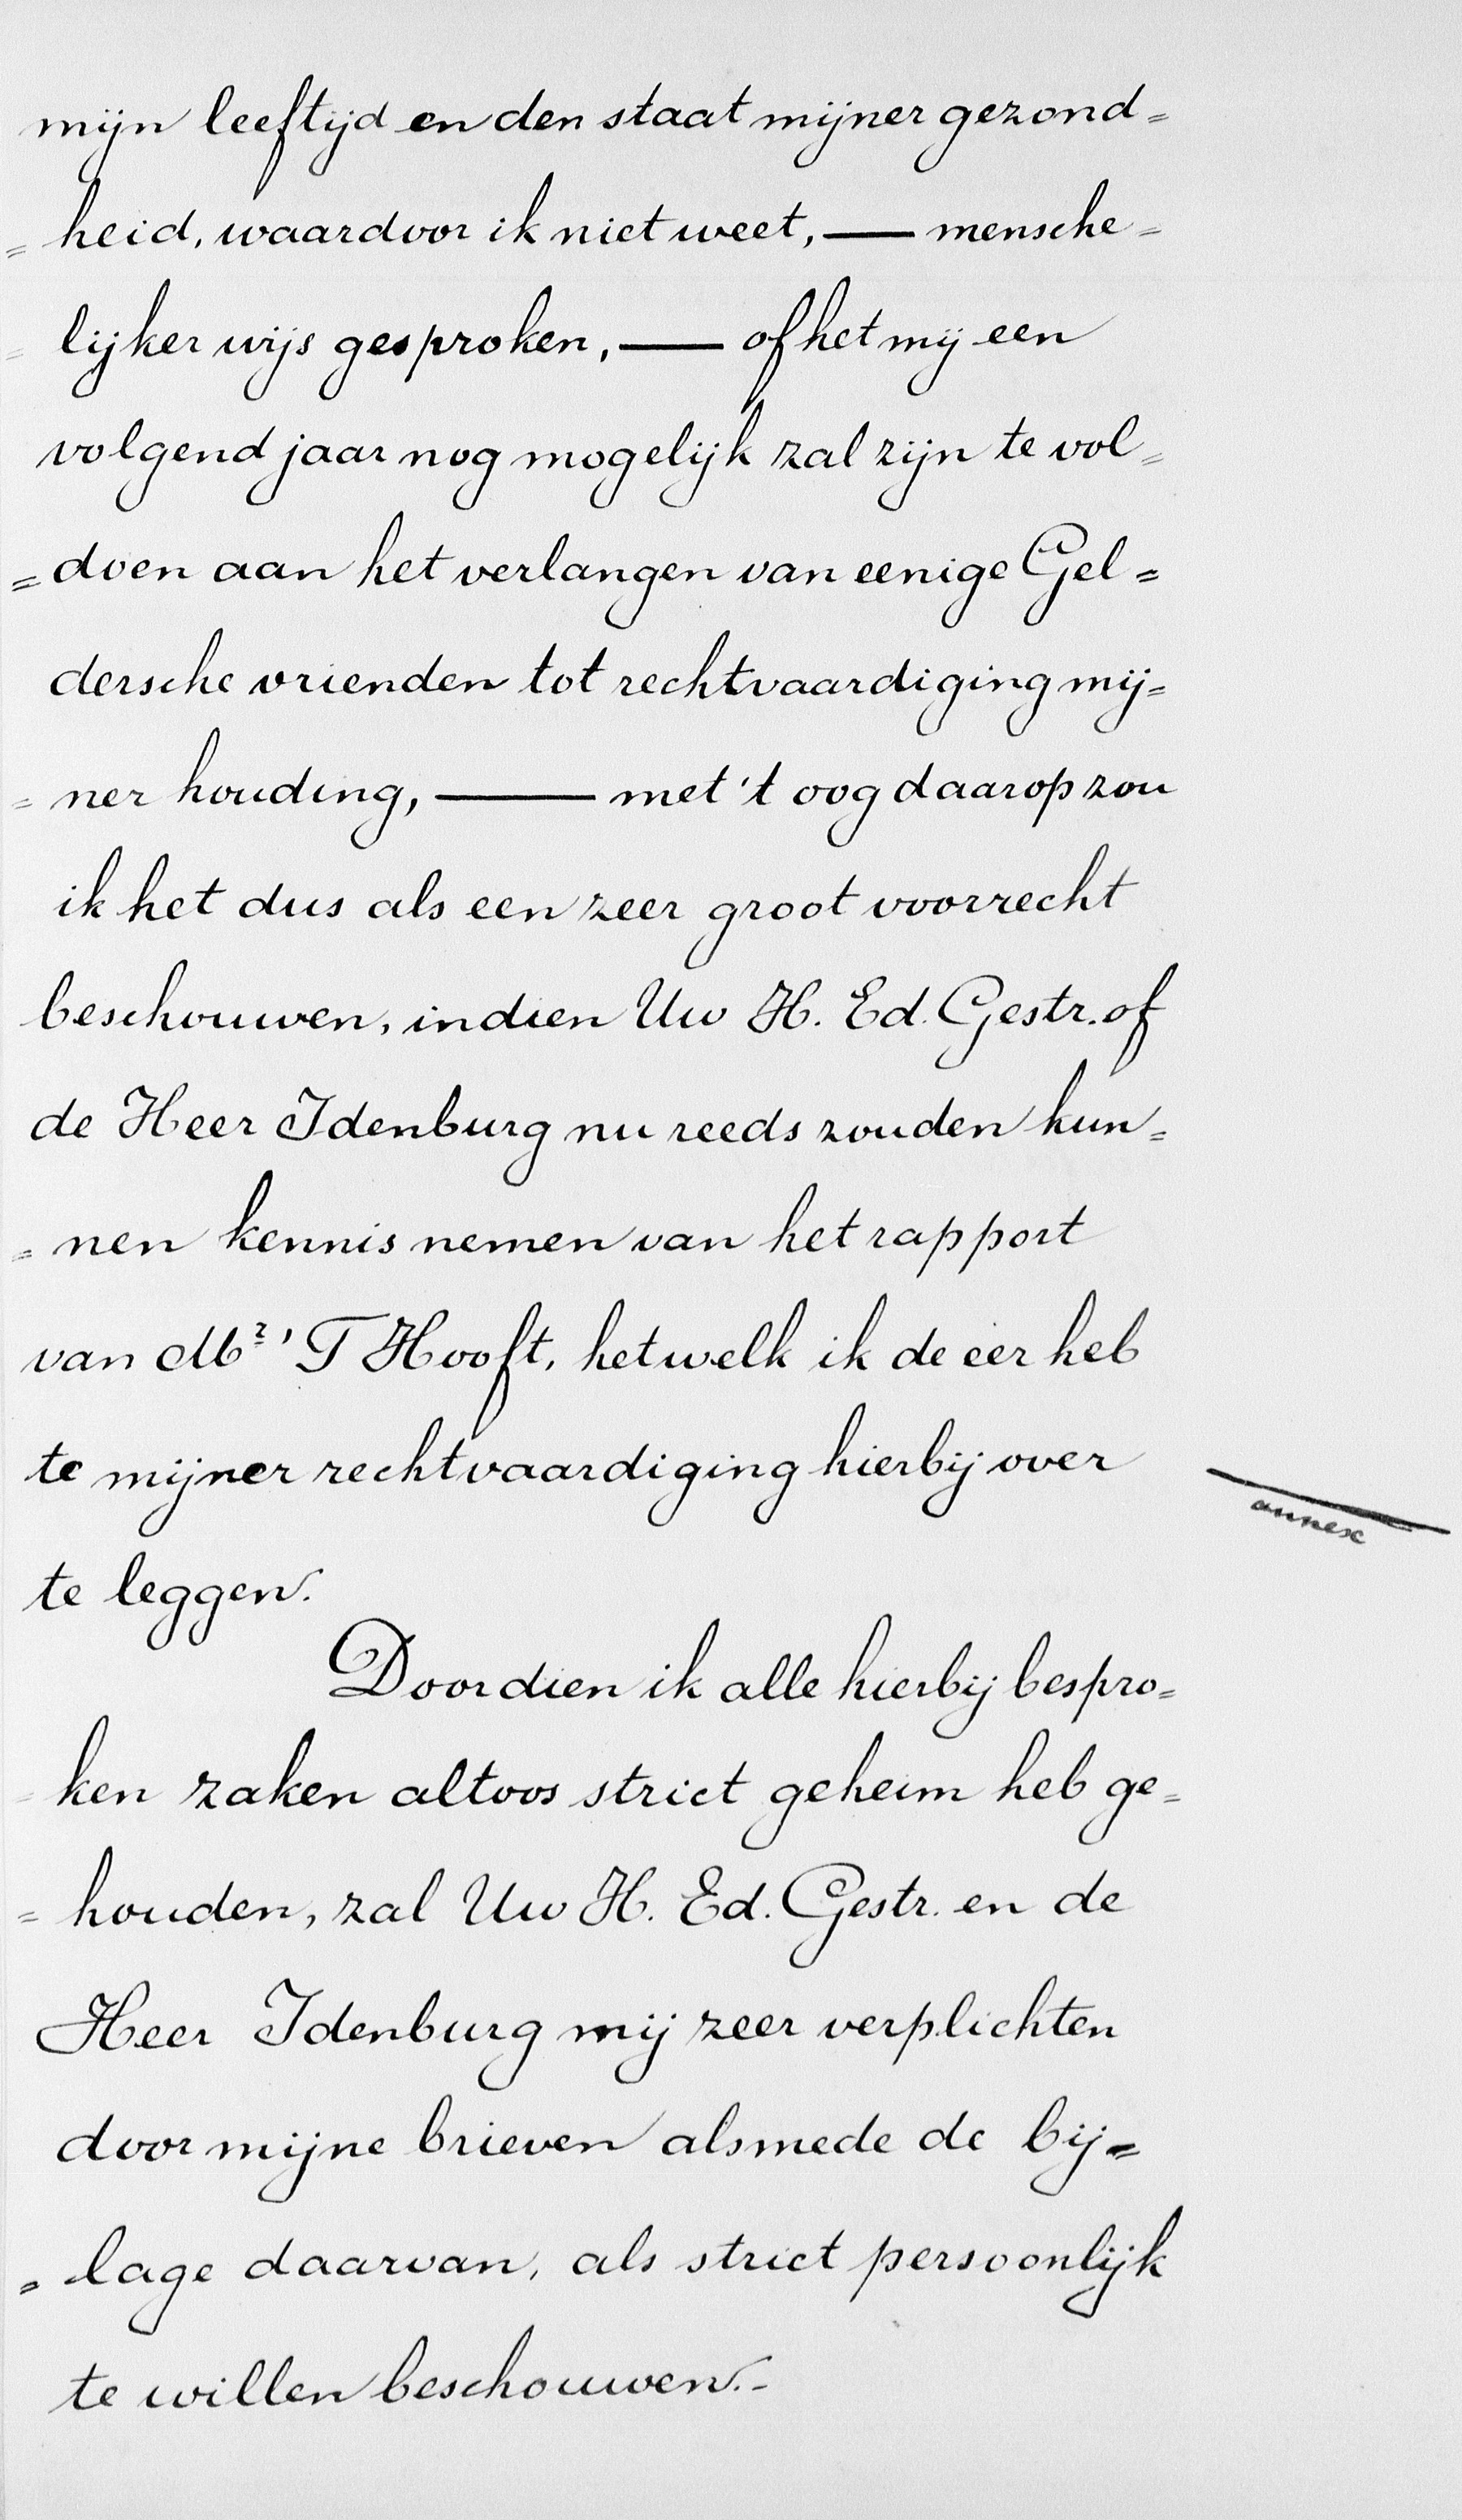 mijn leeftijd en den staat mijner gezond=
=heid, waardoor ik niet weet, — mensche=
=lijker wijs gesproken, — of het mij een
volgend jaar nog mogelijk zal zijn te vol=
=doen aan het verlangen van eenige Gel=
dersche vrienden tot rechtvaardiging mij=
=ner houding, — met 't oog daarop zou
ik het dus als een zeer groot voorrecht
beschouwen, indien Uw H. Ed. Gestr. of
de Heer Idenburg nu reeds zouden kun=
=nen kennis nemen van het rapport
van Mr 'T Hooft, hetwelk ik de eer heb
te mijner rechtvaardiging hierbij over
annex
te leggen.
Doordien ik alle hierbij bespro=
=ken zaken altoos strict geheim heb ge=
=houden, zal Uw H. Ed. Gestr. en de
Heer Idenburg mij zeer verplichten
door mijne brieven alsmede de bij=
=lage daarvan, als strict persoonlijk
te willen beschouwen.-